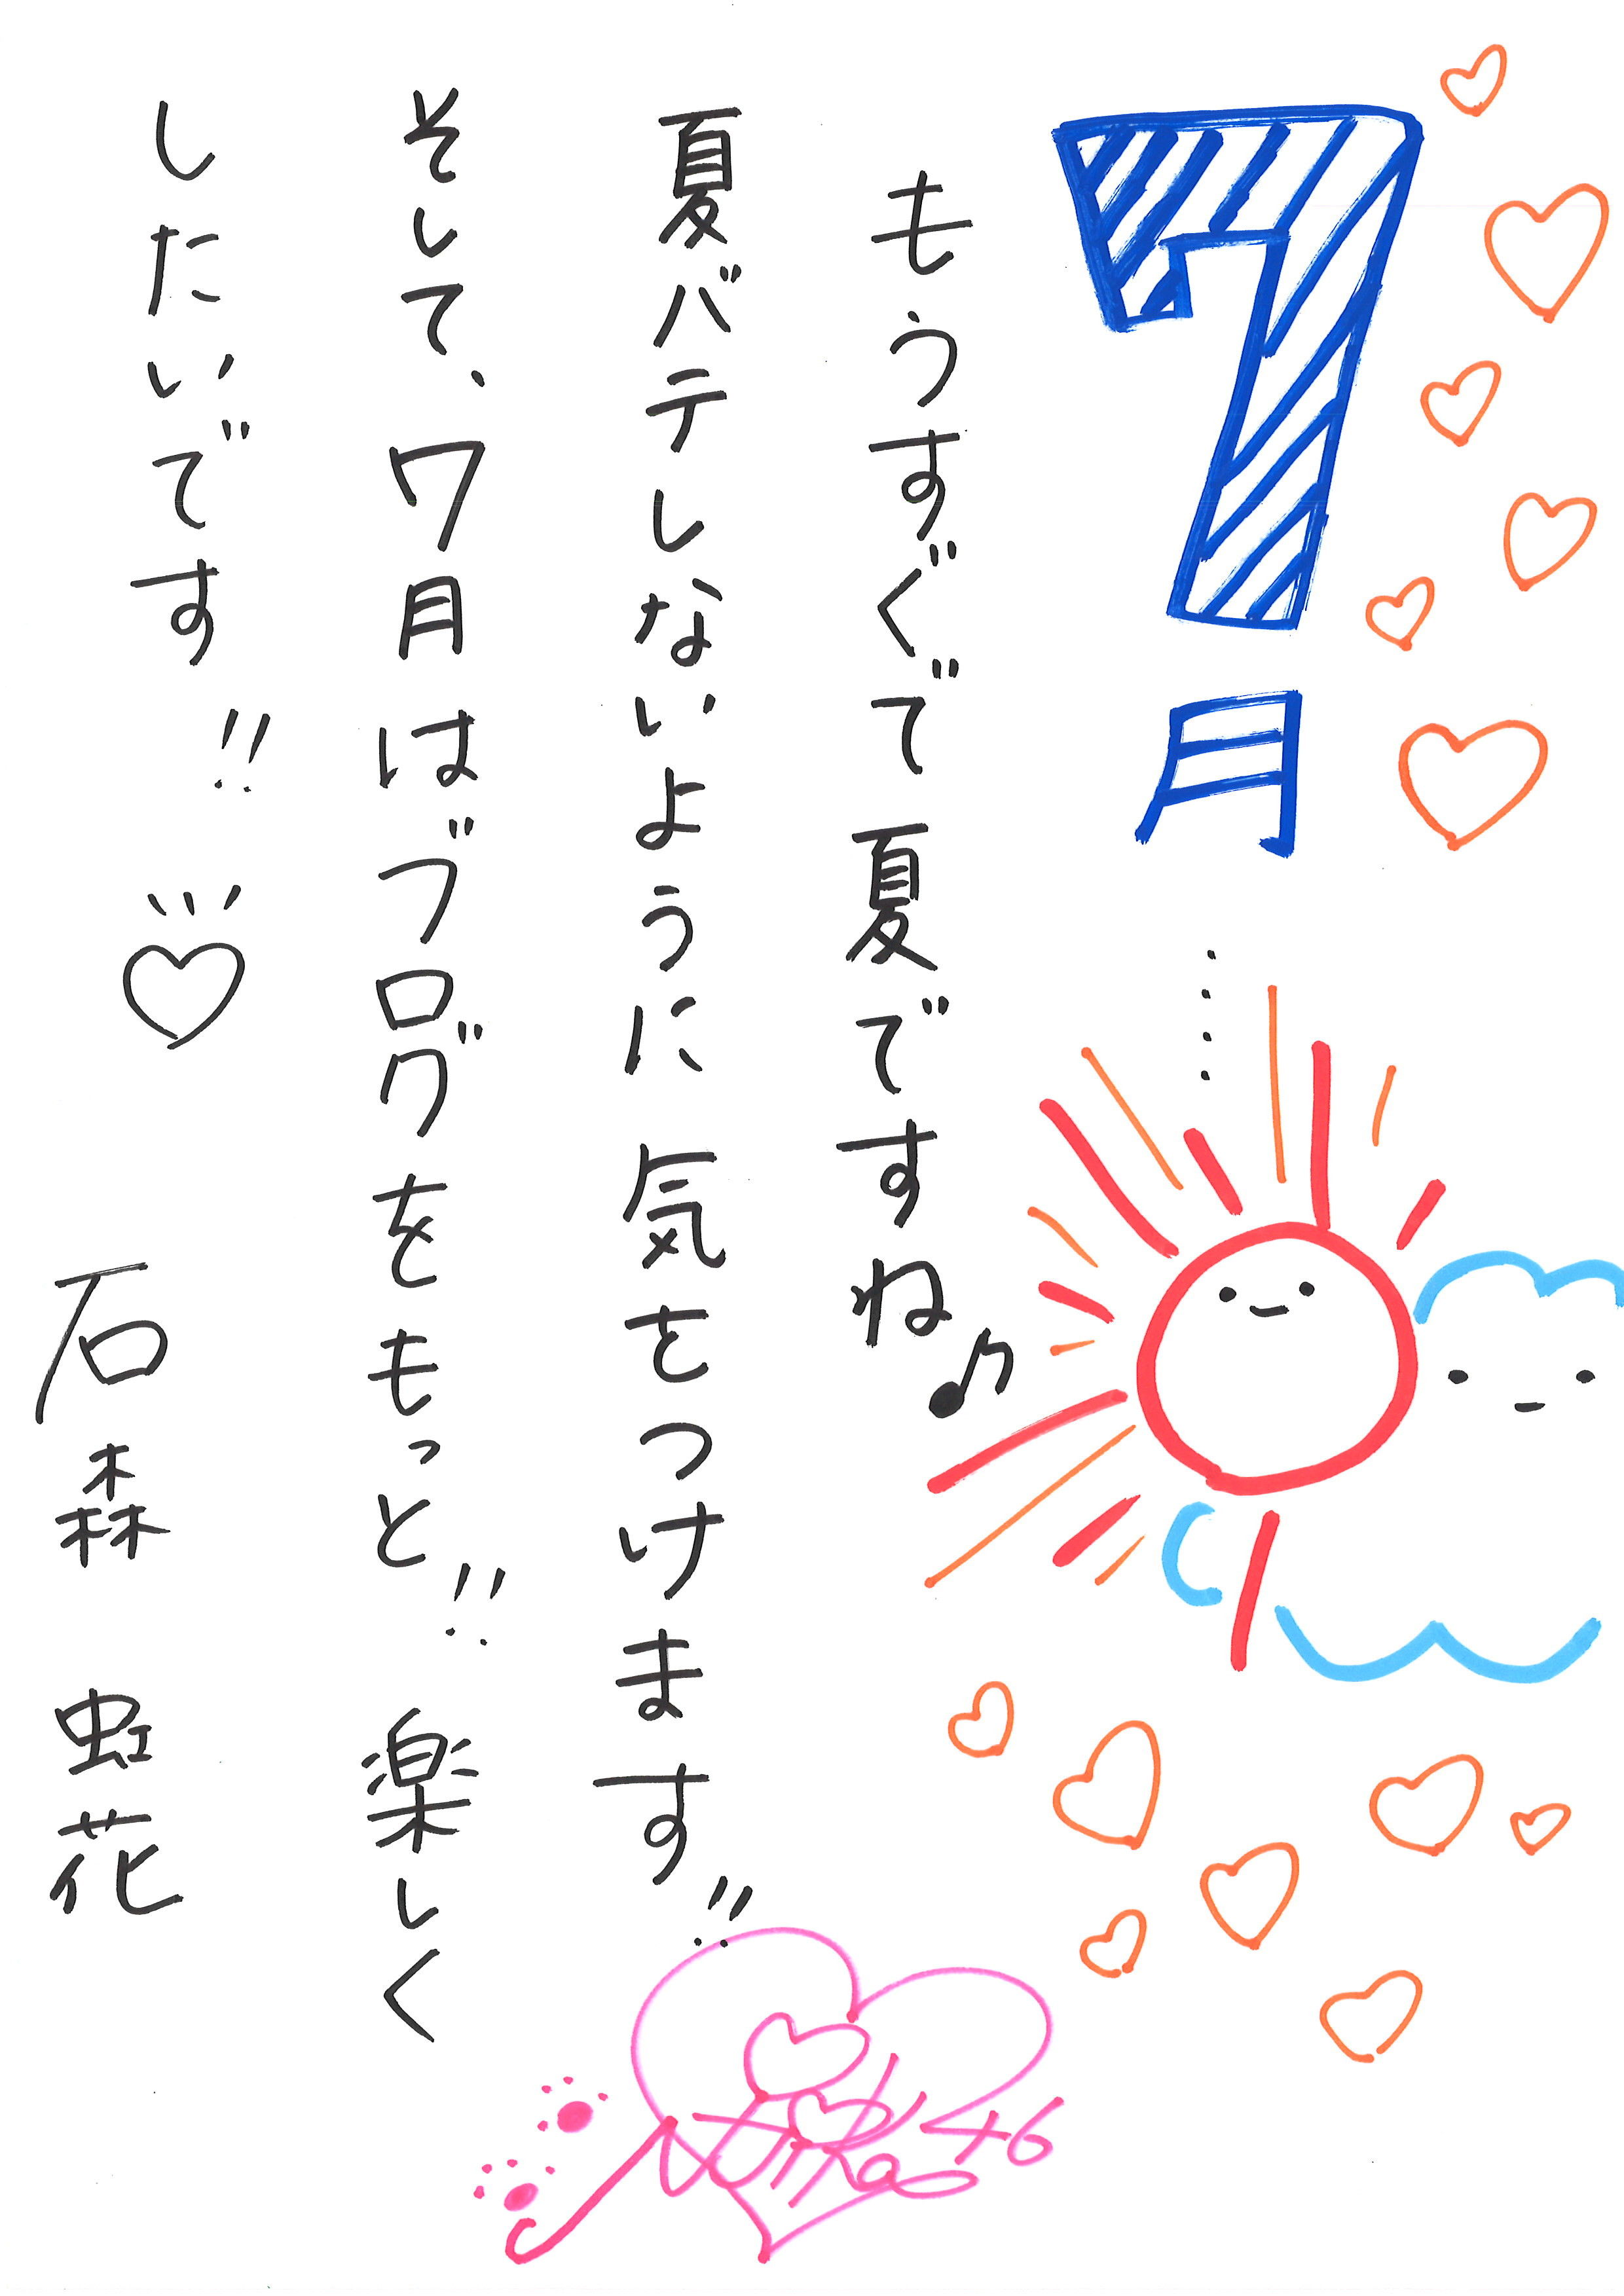 7月‥‥
もうすぐで夏ですね♪
夏バテしないように気をつけます!!
そして、7月はブログをもっと!!楽しく
したいです!!♡
石森 虹花
Nika 46